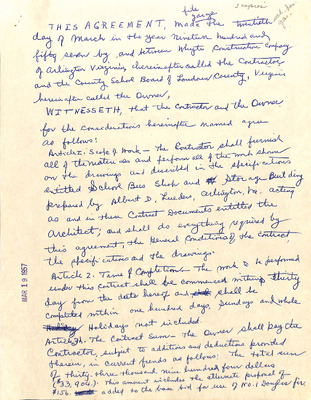 THIS AGREEMENT, made the twentieth
day of March in the year Nineteen hundred and
fifty seven by and between Whyte Construction Company
of Arlington Virginia hereinafter called the Contractor
and the County School Board of Loudoun County, Virginia
hereinafter called the Owner,
WITNESSETH, that the Contractor and the Owner
for the considerations hereinafter named agree
as follows:
Article 1. Scope of Work - The Contractor shall furnish
all of the materials and perform all of the work shown
on the drawings and described in the specifications
entitled School Bus Shop and Storage Building
prepared by Albert D. Lueders, Arlington, Va. acting
as and in these Contract Documents entitled the
Architect, and shall do everything required by
this agreement, the General Conditions of the contract
the specifications and the drawings.
Article 2. Time of Completion - The work to be performed
under this Contract shall be commenced within thirty
days from the date hereof and shall be
completed within one hundred days, Sundays and whole
Holidays not included
Article 3. The Contract Sum - The Owner shall pay the
Contractor, subject to additions and deductions provided
therein, in current funds as follows: The total sum
of Thirty three thousand nine hundred four dollars
($33,904). This amount includes the alternate proposal of
$156. added to the base bid for use of No. 1 Douglas fir
MAR 19 1957